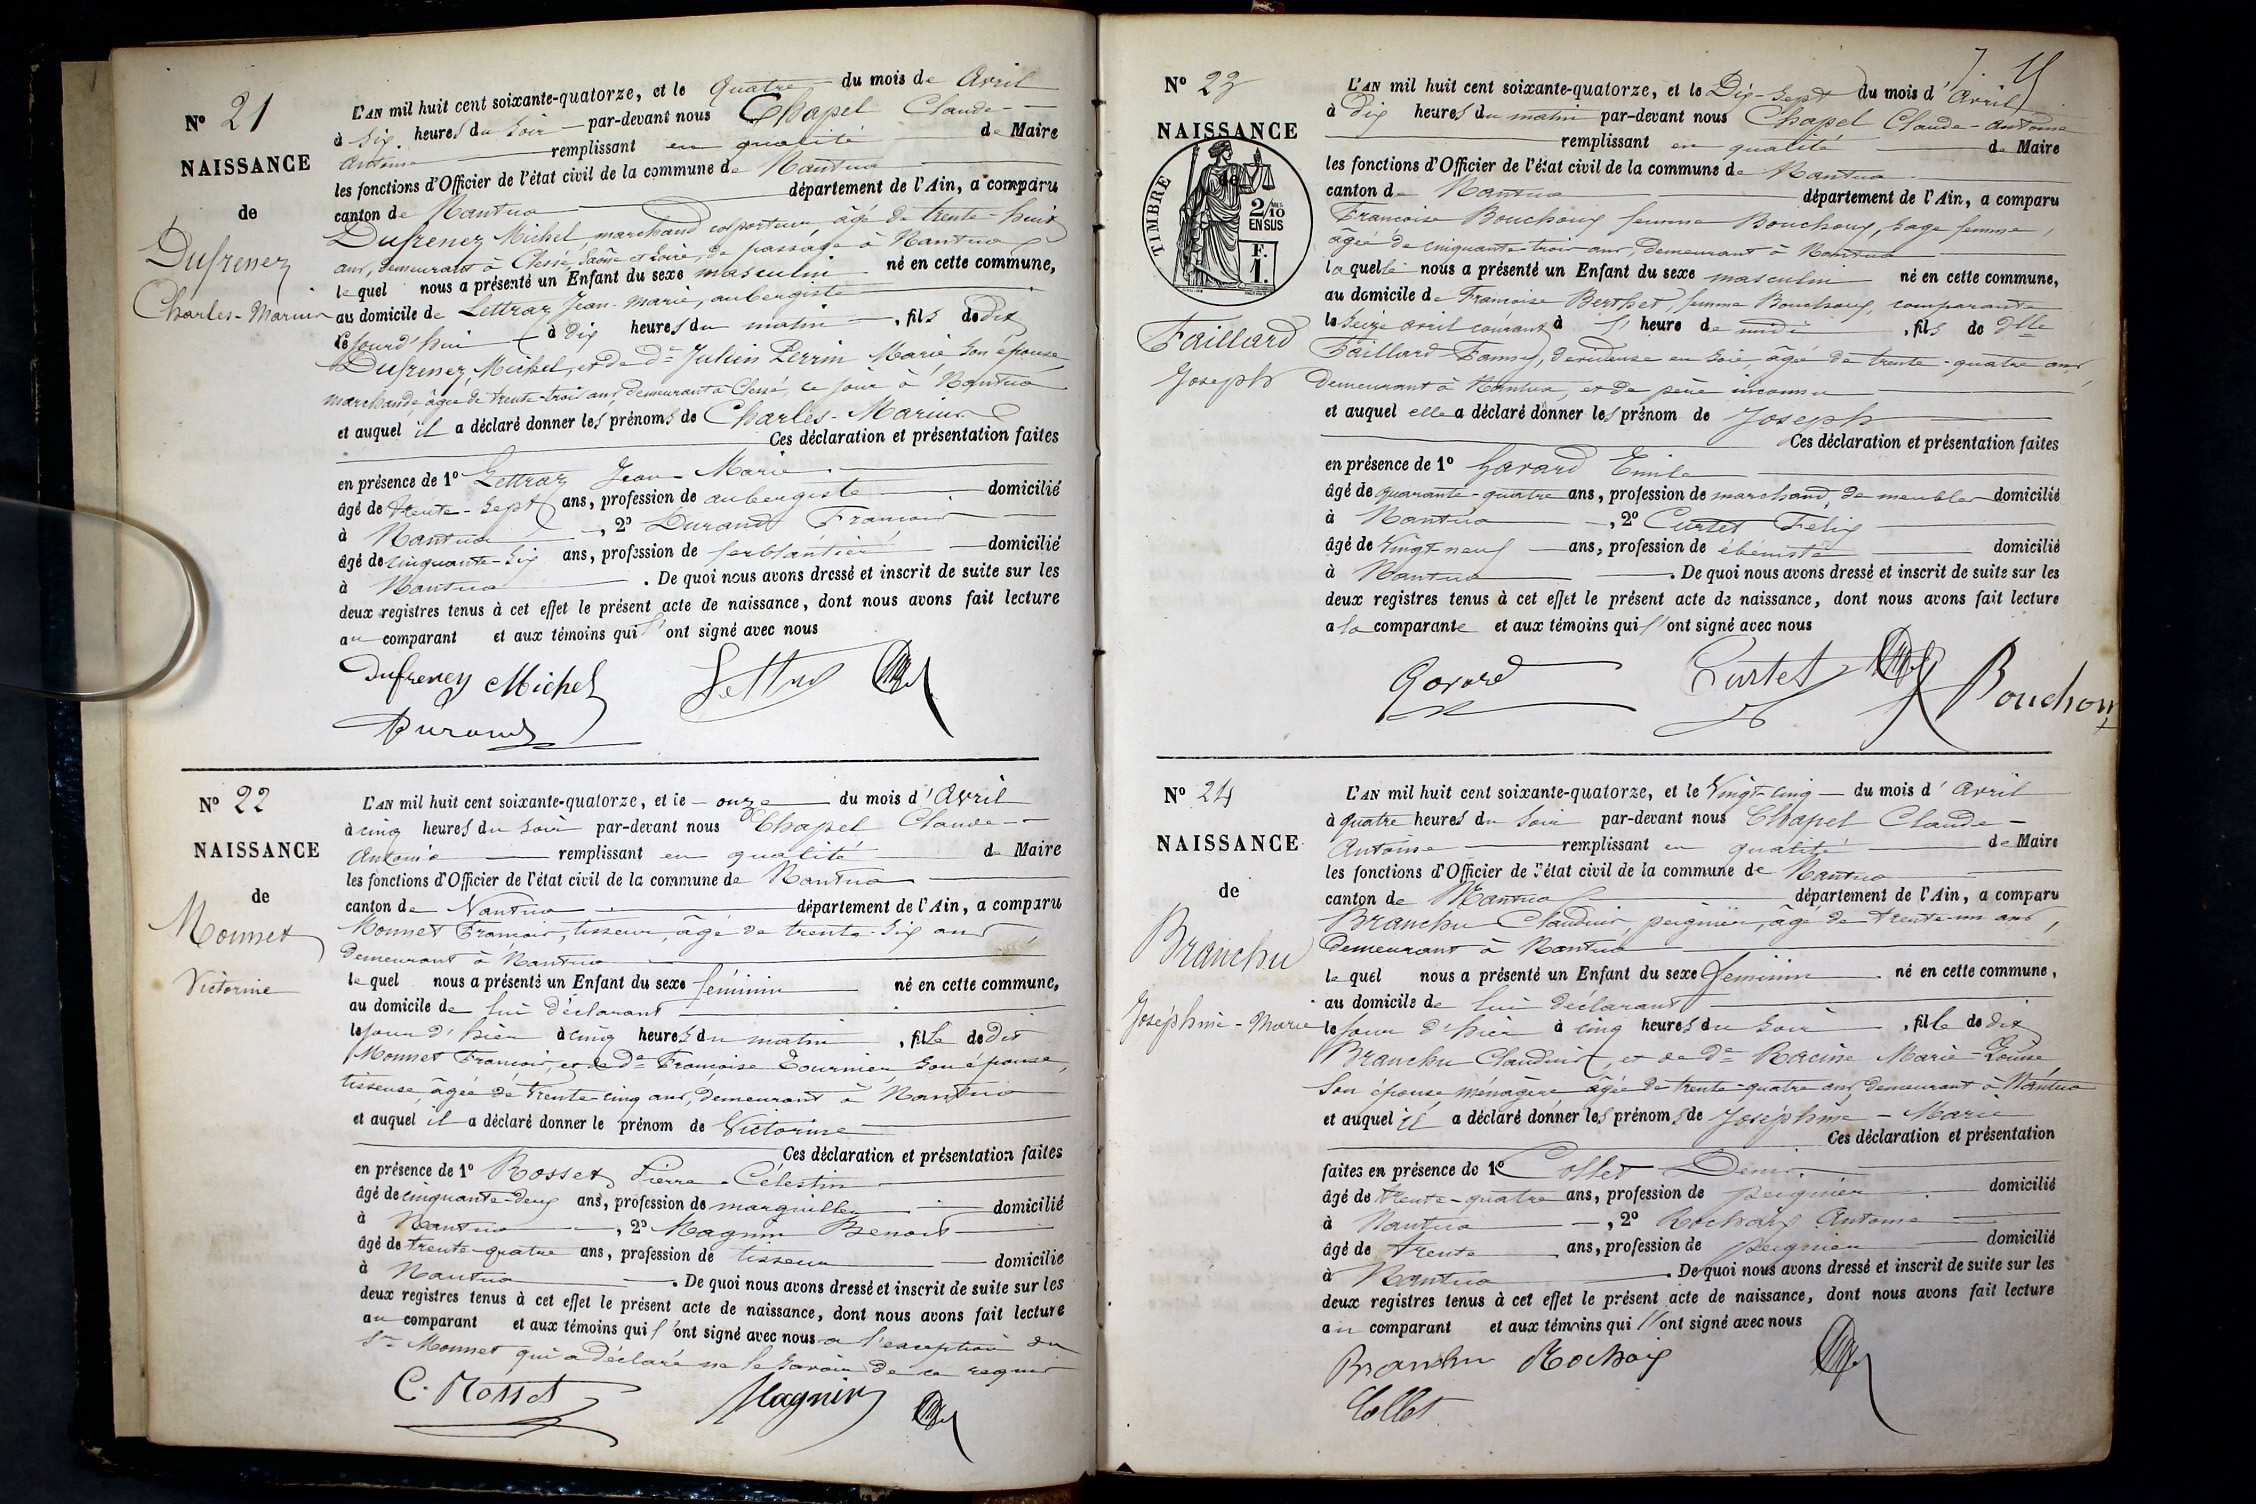 Nº 21
NAISSANCE
de
Dufrenez
Charles-Marius
L'AN mil huit cent soixante-quatorze, et le quatre du mois de Avril
à six heures du soir par-devant nous Chapel Claude-
Antoine remplissant en qualité de Maire
les fonctions d'Officier de l'état civil de la commune de Nantua
canton de Nantua département de l'Ain, a comparu
Dufrenez Michel, marchand colporteur âgé de trente-huit
ans, demeurant à Clessé, Saône et Loire, de passage à Nantua
lequel nous a présenté un Enfant du sexe masculin né en cette commune,
au domicile de Lettraz Jean-Marie, aubergiste
ce jourd'hui à dix heures du matin, fils de dit
Dufrenez Michel, et de De Julien Perrin Marie son épouse,
marchande, âgée de trente-trois ans, demeurant à Clessé, ce jour à Nantua
et auquel il a déclaré donner les prénoms de Charles-Marius
Ces déclaration et présentation faites
en présence de 1º Lettraz Jean Marie
âgé de trente-sept ans, profession de aubergiste domicilié
à Nantua, 2º Durand François
âgé de cinquante-six ans, profession de ferblantier domicilié
à Nantua. De quoi nous avons dressé et inscrit de suite sur les
deux registres tenus à cet effet le présent acte de naissance, dont nous avons fait lecture
au comparant et aux témoins qui l'ont signé avec nous
Dufrenez Michel Lettraz
Durand
Nº 22
NAISSANCE
de
Monnet
Victorine
L'AN mil huit cent soixante-quatorze, et le onze du mois d'Avril
à cinq heures du soir par-devant nous Chapel Claude-
Antoine remplissant en qualité de Maire
les fonctions d'Officier de l'état civil de la commune de Nantua
canton de Nantua département de l'Ain, a comparu
Monnet François, tisseur, âgé de trente-six ans,
demeurant à Nantua
lequel nous a présenté un Enfant du sexe féminin né en cette commune,
au domicile de lui déclarant
le jour d'hier à cinq heures du matin, fille de dit
Monnet François, et de De Françoise Tournier son épouse,
tisseuse, âgée de trente-cinq ans, demeurant à Nantua
et auquel il a déclaré donner le prénom de Victorine
Ces déclaration et présentation faites
en présence de 1º Rosset Pierre-Célestin
âgé de cinquante-deux ans, profession de marguillier domicilié
à Nantua, 2º Magnin Benoit
âgé de trente-quatre ans, profession de tisseur domicilié
à Nantua. De quoi nous avons dressé et inscrit de suite sur les
deux registres tenus à cet effet le présent acte de naissance, dont nous avons fait lecture
au comparant et aux témoins qui l'ont signé avec nous à l'exception du
Sr Monnet qui a déclaré ne le savoir de ce requis
C. Rosset Magnin
Nº 23
NAISSANCE
de
TIMBRE
2/10 EN SUS
F. 1.
Faillard
Joseph
L'AN mil huit cent soixante-quatorze, et le Dix-sept du mois d'Avril
à dix heures du matin par-devant nous Chapel Claude-Antoine
remplissant en qualité de Maire
les fonctions d'Officier de l'état civil de la commune de Nantua
canton de Nantua département de l'Ain, a comparu
Françoise Bouchoux femme Bouchoux, sage femme,
âgée de cinquante-trois ans, demeurant à Nantua
laquelle nous a présenté un Enfant du sexe masculin né en cette commune,
au domicile de Françoise Berthet, femme Bouchoux, comparante
le seize avril courant à l'heure de midi, fils de Dlle
Faillard Fanny, dévideuse en soie, âgée de trente-quatre ans,
demeurant à Nantua, et de père inconnu
et auquel elle a déclaré donner les prénom de Joseph
Ces déclaration et présentation faites
en présence de 1º Gavard Emile
âgé de quarante-quatre ans, profession de marchand de meubles domicilié
à Nantua, 2º Curtet Félix
âgé de vingt-neuf ans, profession de ébéniste domicilié
à Nantua. De quoi nous avons dressé et inscrit de suite sur les
deux registres tenus à cet effet le présent acte de naissance, dont nous avons fait lecture
a la comparante et aux témoins qui l'ont signé avec nous
Gavard Curtet Bouchoux
Nº 24
NAISSANCE
de
Branchu
Joséphine-Marie
L'AN mil huit cent soixante-quatorze, et le Vingt-cinq du mois d'Avril
à quatre heures du soir par-devant nous Chapel Claude-
Antoine remplissant en qualité de Maire
les fonctions d'Officier de l'état civil de la commune de Nantua
canton de Nantua département de l'Ain, a comparu
Branchu Claudius, peignier, âgé de trente-un ans,
demeurant à Nantua
lequel nous a présenté un Enfant du sexe féminin né en cette commune,
au domicile de lui déclarant
le jour d'hier à cinq heures du soir, fille de dit
Branchu Claudius, et de De Racine Marie-Louise
son épouse ménagère âgée de trente-quatre ans, demeurant à Nantua
et auquel il a déclaré donner les prénoms de Joséphine-Marie
Ces déclaration et présentation
faites en présence de 1º Collet Denis
âgé de trente-quatre ans, profession de peignier domicilié
à Nantua, 2º Rochaix Antoine
âgé de trente ans, profession de peignier domicilié
à Nantua. De quoi nous avons dressé et inscrit de suite sur les
deux registres tenus à cet effet le présent acte de naissance, dont nous avons fait lecture
au comparant et aux témoins qui l'ont signé avec nous
Branchu Rochaix
Collet